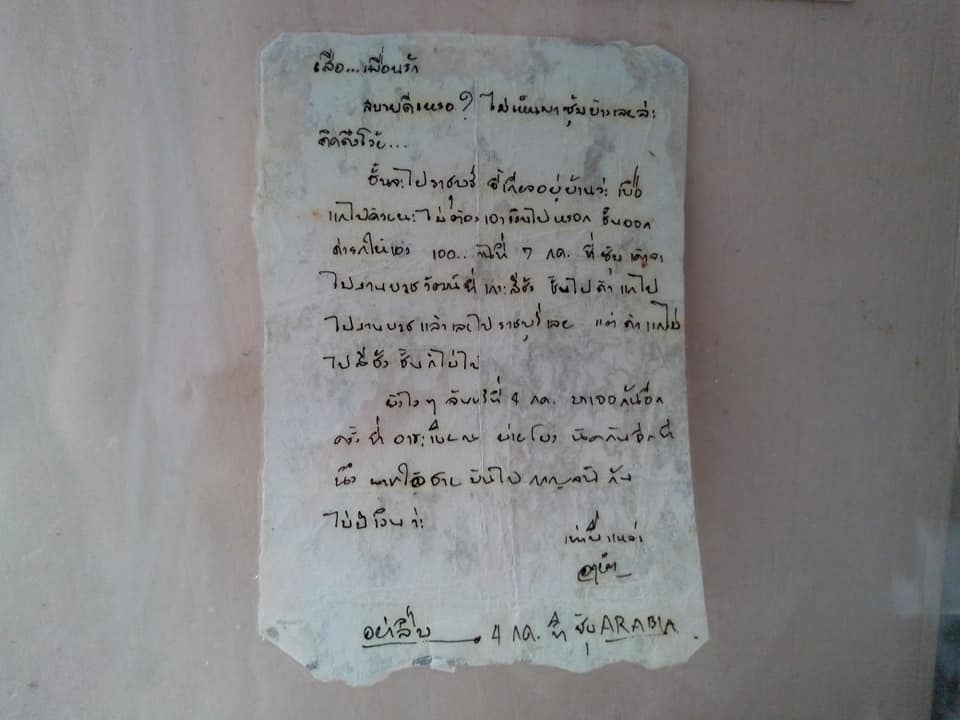 เสือ...เพื่อนรัก
สบายดีเหรอ? ไม่เห็นมาซุ้มบ้างเลยล่ะ
คิดถึงโว้ย...
ชั้นจะไปราชบุรี ขี้เกียจอยู่บ้านว่ะ เบื่อ
แกไปด้วยนะ ไม่ต้องเอาเงินไปหรอก ชั้นออก
ค่ารถให้เอง 100.. วันที่ 7 กค. ที่ซุ้มเค้าจะ
ไปงานบวชวัฒน์ที่เกาะสีชัง ชั้นไปถ้าแกไป
ไปงานบวชแล้วเลยไปราชบุรีเลย แต่ถ้าแกไม่
ไปสีชัง ชั้นก็ไม่ไป
ยังไงๆ วันที่ 4 กค. มาเจอกันอีก
ครั้ง ที่ บ่ายโมง นัดกันอีกที
นึง ไปกาญจน์กัน
ไม่มีเงินว่ะ
เท่านี้แหละ
อย่าลืม 4 กค. ที่ ซุ้ม ARABIA